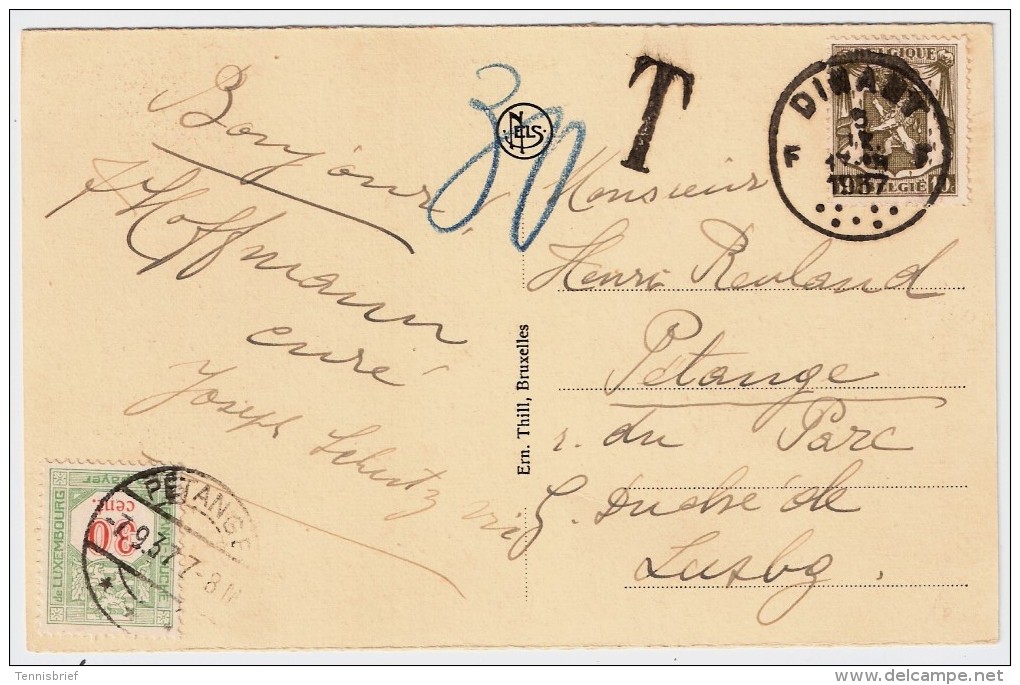 Bonjour
Hoffmann
curé
Joseph Schutz
30
NELS
T
BELGIQUE
BELGIË
DINANT
3
1937
F F
Monsieur
Henri Reuland
Pétange
r. du Parc
G. Duché de
Luxbg
Ern. Thill, Bruxelles
de LUXEMBOURG
30
cent.
PÉTANGE
-7.9.37.7-8
Tennisbrief
delcampe.net